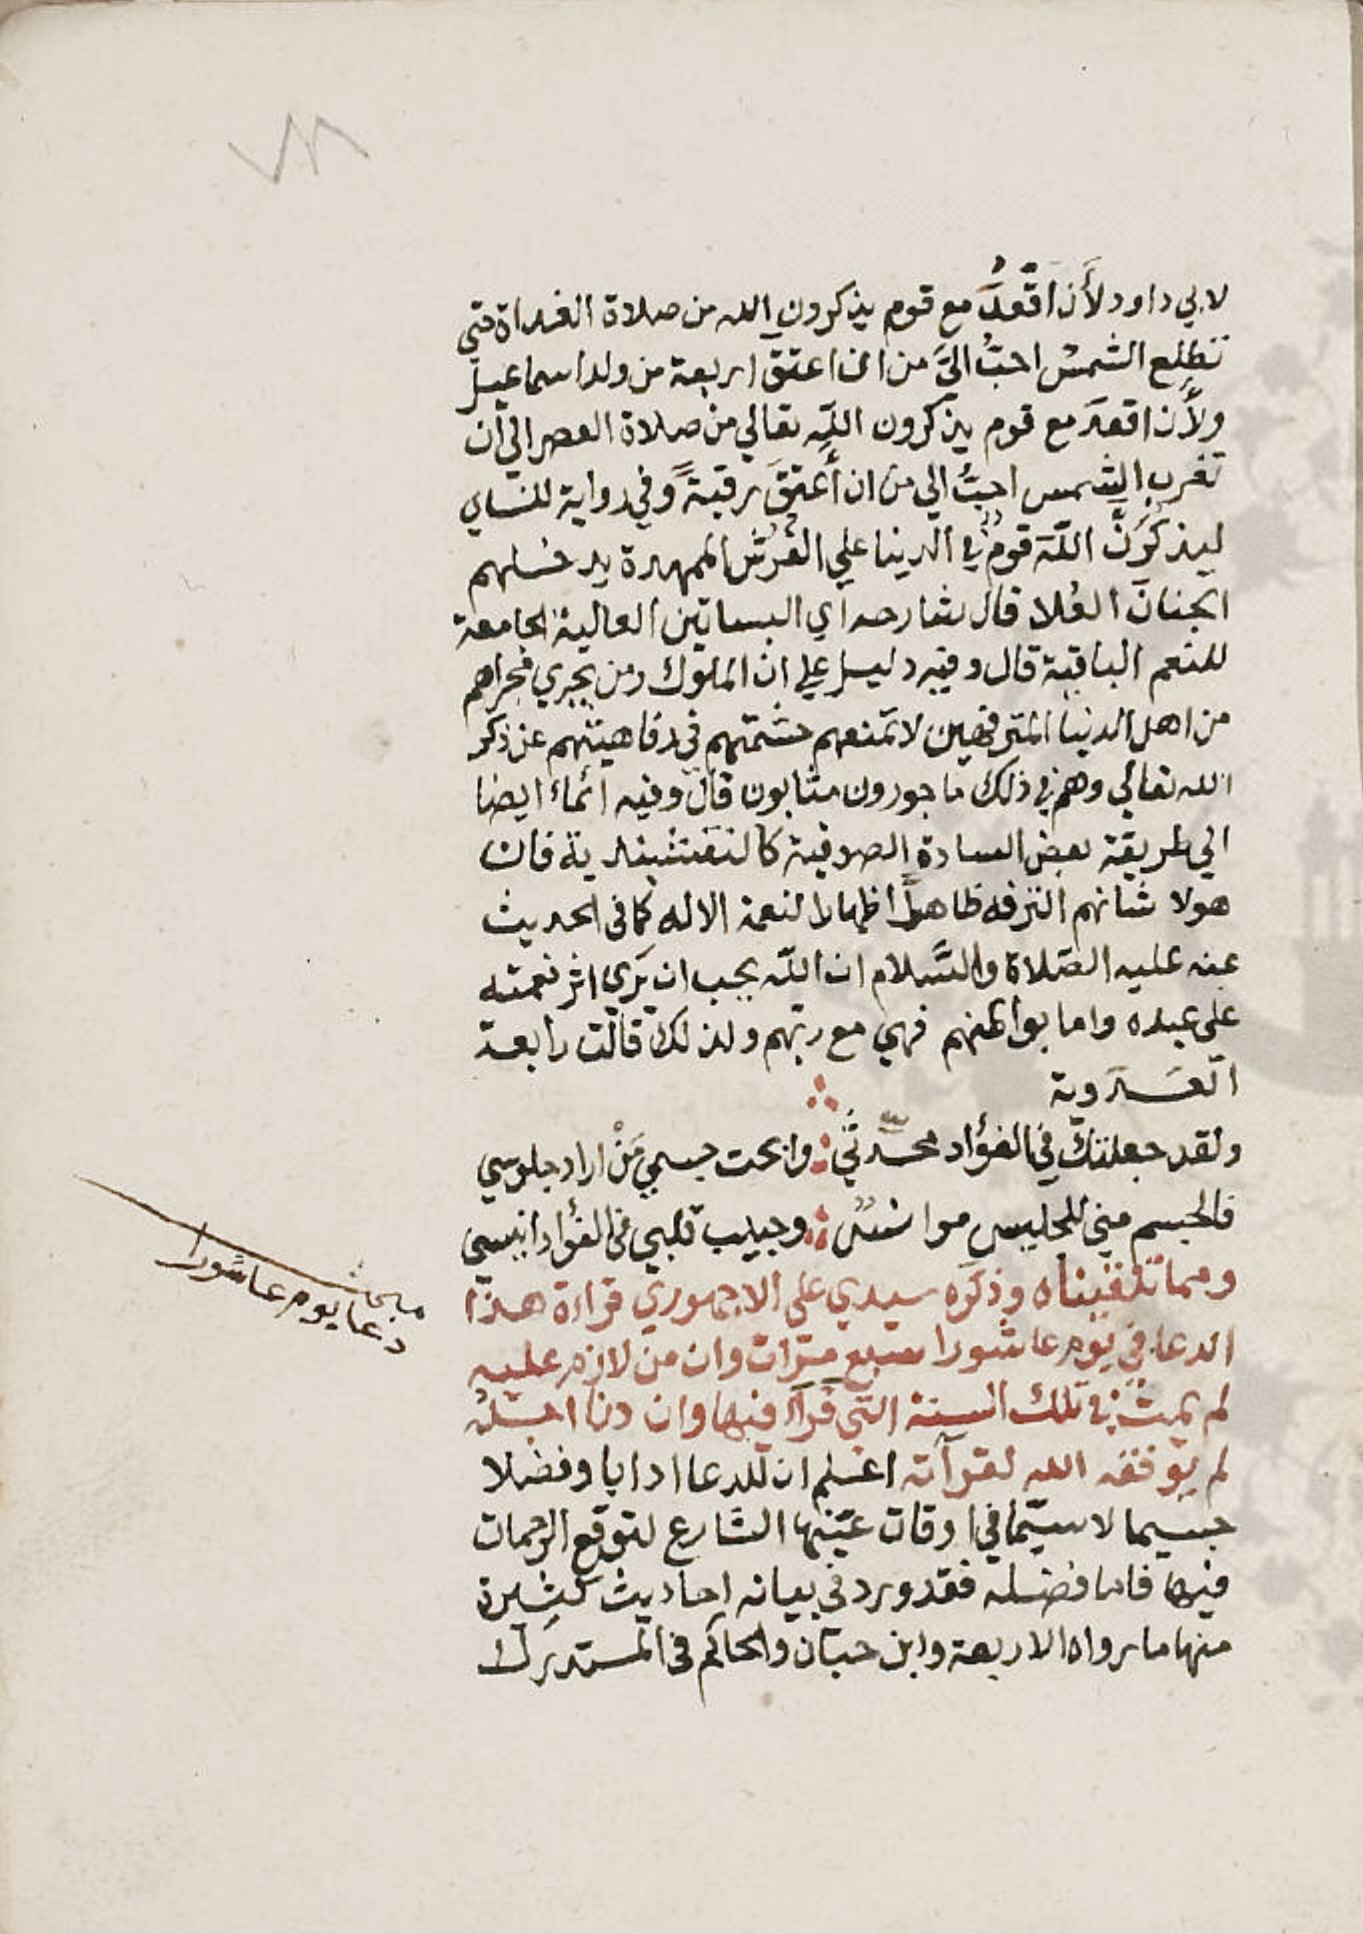 لابي داود لأَن اقْعُدَ مع قوم يذكرون الله من صلاة الغداة حتي
تطلع الشمس احبُّ اليَّ من ان اعتق اربعة من ولد اسماعيل
ولأَن اقعدَ مع قوم يذكرون اللَّه تعالي من صلاة العصر الي أن
تغرب الشمس احبُّ الي من ان أُعتِقَ رقبةً وفي رواية للنساي
ليذكُرَنَّ اللَّهَ قومٌ في الدينا علي الفُرُشِ الممهدة يدخلهم
الجنانَ العُلا قال شارحه اي البساتين العالية الجامعة
للنعم الباقية قال وفيه دليل علي ان الملوك ومن يجري مجراهم
من اهل الدنيا المترفهين لا تمنعهم حشمتهم في رفاهيتهم عن ذكر
الله تعالي وهم في ذلك ماجورون مثابون قال وفيه ائماء ايضا
الي طريقة بعض السادة الصوفية كالنقشبندية فان
هولا شانهم الترفه ظاهراً اظهارا لنعمة الاله كما في الحديث
عنه عليه الصَّلاة والسَّلام ان اللَّه يحب ان يَرَي اثر نعمته
علي عبده واما بواطنهم فهي مع ربّهم ولذلك قالت رابعة
العَدَوية
ولقد جعلتكَ في الفؤاد محدّثي وابحت جسمي مَنْ اراد جلوسي
فالجسم مني للجليس موانس وحبيب قلبي في الفؤاد انيسي
ومما تلقيناه وذكره سيدي علي الاجهوري قراءة هذا
الدعا في يوم عاشورا سبع مرّات وان من لازم عليه
لم يمت في تلك السنة التي قرأه فيها وان دنا اجلُه
لم يوفقه الله لقرآته اعلم ان للدعا ادابا وفضلا
جسيما لا سيّما في اوقات عيّنها الشارع لتوقع الرحمات
فيها فاما فضله فقد ورد في بيانه احاديث كثيرة
منها ما رواه الاربعة وابن حبّان والحاكم في المستدرك
مبحث
دعا يوم عاشورا